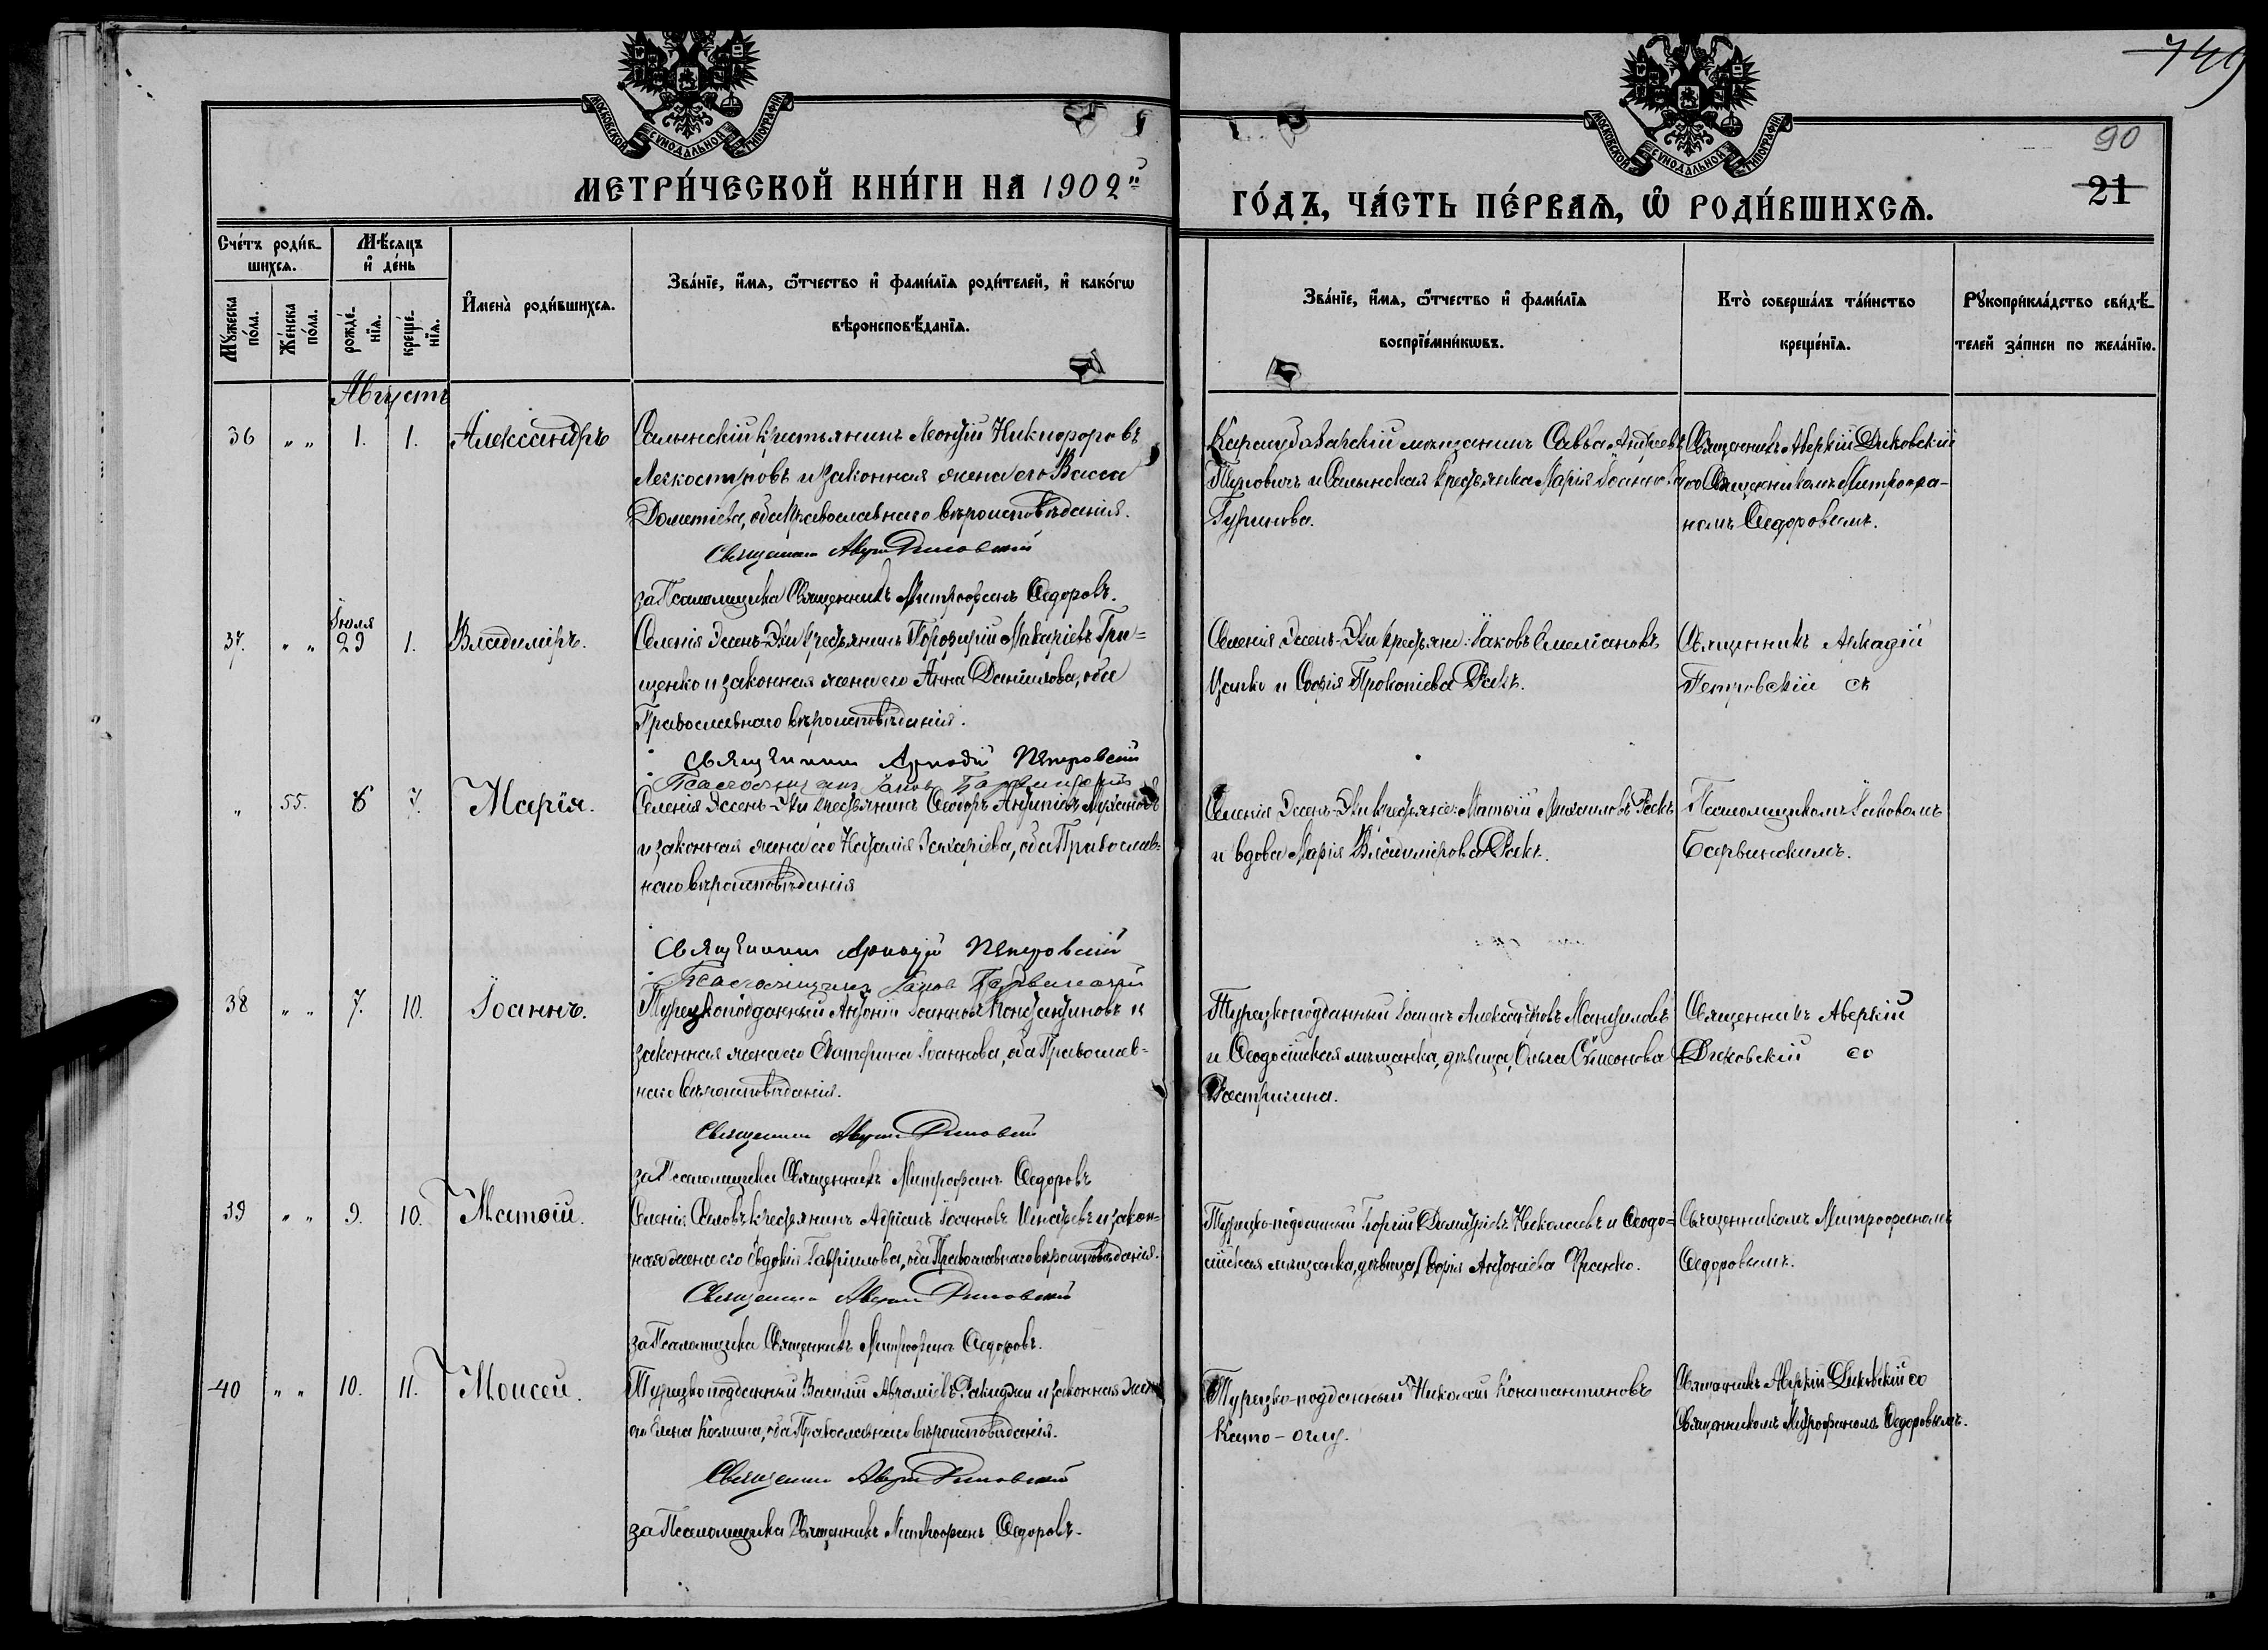 749
90
21
МОСКОВСКОЙ СУНОДАЛЬНОЙ ТИПОГРАФІИ
МОСКОВСКОЙ СУНОДАЛЬНОЙ ТИПОГРАФІИ
МЕТРИ́ЧЕСКОЙ КНИ́ГИ НА 1902й
ГО́ДЪ, ЧА́СТЬ ПЕ́РВАѦ, Ѡ РОДИ́ВШИХСѦ.
Сче́тъ роди́в-
шихсѧ.
Мѣ́сѧцъ
и҆ де́нь
Мꙋ́жеска
по́ла.
Же́нска
по́ла.
рожде́-
нїѧ.
креще́-
нїѧ.
И҆мена̀ роди́вшихсѧ.
Зва́нїе, и҆́мѧ, ѻ҆́тчество и҆ фами́лїѧ роди́телей, и҆ како́гѡ
вѣроисповѣ́данїѧ.
Зва́нїе, и҆́мѧ, ѻ҆́тчество и҆ фами́лїѧ
воспрїе́мникѡвъ.
Кто̀ соверша́лъ та́инство
креще́нїѧ.
Рꙋкоприкла́дство свидѣ́-
телей за́писи по жела́нїю.
Августъ
36 „ „ 1. 1. Александръ
Салынскій крестьянинъ Леонтій Никифоровъ
Легкоступовъ и законная жена его Васса
Дометіева, оба Православнаго вѣроисповѣданія.
Священникъ Аверкій Диковскій
за Псаломщика Священникъ Митрофанъ Ѳедоровъ.
Карасубазарскій мѣщанинъ Савва Андреевъ
и Салынская крестьянка Марія Іоаннова
Гуринова.
Священникъ Аверкій Диковскій
со Священникомъ Митрофа-
номъ Ѳедоровымъ.
Іюля
37. „ „ 29 1. Владиміръ.
Селенія Эссенъ-Эки крестьянинъ Порфирій Макаріевъ Гри-
щенко и законная жена его Анна Даніилова, оба
Православнаго вѣроисповѣданія.
Священникъ Аркадій Петровскій
Псаломщикъ Іаковъ Барвинскій
Селенія Эссенъ-Эки крестьяне: Іаковъ Емеліановъ
и Софія Прокопіева Ракъ.
Священникъ Аркадій
Петровскій съ
„ 55. 6 7. Марія.
Селенія Эссенъ-Эки крестьянинъ Ѳеодоръ Антипіевъ
и законная жена его Наталія Захаріева, оба Православ-
наго вѣроисповѣданія
Священникъ Аркадій Петровскій
Псаломщикъ Іаковъ Барвинскій
Селенія Эссенъ-Эки крестьяне: Матѳій Михаиловъ Ракъ
и вдова Марія Владимірова Ракъ.
Псаломщикомъ Іаковомъ
Барвинскимъ.
38 „ „ 7. 10. Іоаннъ.
Турецкоподданный Антоній Іоанновъ Константиновъ и
законная жена его Екатерина Іоаннова, оба Православ-
наго вѣроисповѣданія.
Священникъ Аверкій Диковскій
за Псаломщика Священникъ Митрофанъ Ѳедоровъ
Турецкоподданный Іоаннъ Александровъ
и Ѳеодосійская мѣщанка, дѣвица, Ольга Сѵмеонова
Вострикина.
Священникъ Аверкій
Диковскій со
39 „ „ 9. 10. Матѳій.
Селенія Саловъ крестьянинъ Адріанъ Іоанновъ Игнатьевъ и закон-
ная жена его Евдокія Гавріилова, оба Православнаго вѣроисповѣданія.
Священникъ Аверкій Диковскій
за Псаломщика Священникъ Митрофанъ Ѳедоровъ.
Турецко-подданный Георгій Димитріевъ Николаевъ и Ѳеодо-
сійская мѣщанка, дѣвица, Марія Антоніева Франко.
Священникомъ Митрофаномъ
Ѳедоровымъ.
40 „ „ 10. 11. Моисей.
Турецкоподданный Василій Авраміевъ и законная жена
его Елена Козмина, оба Православнаго вѣроисповѣданія.
Священникъ Аверкій Диковскій
за Псаломщика Священникъ Митрофанъ Ѳедоровъ.
Турецко-подданный Николай Константиновъ
Като-оглу.
Священникъ Аверкій Диковскій со
Священникомъ Митрофаномъ Ѳедоровымъ.